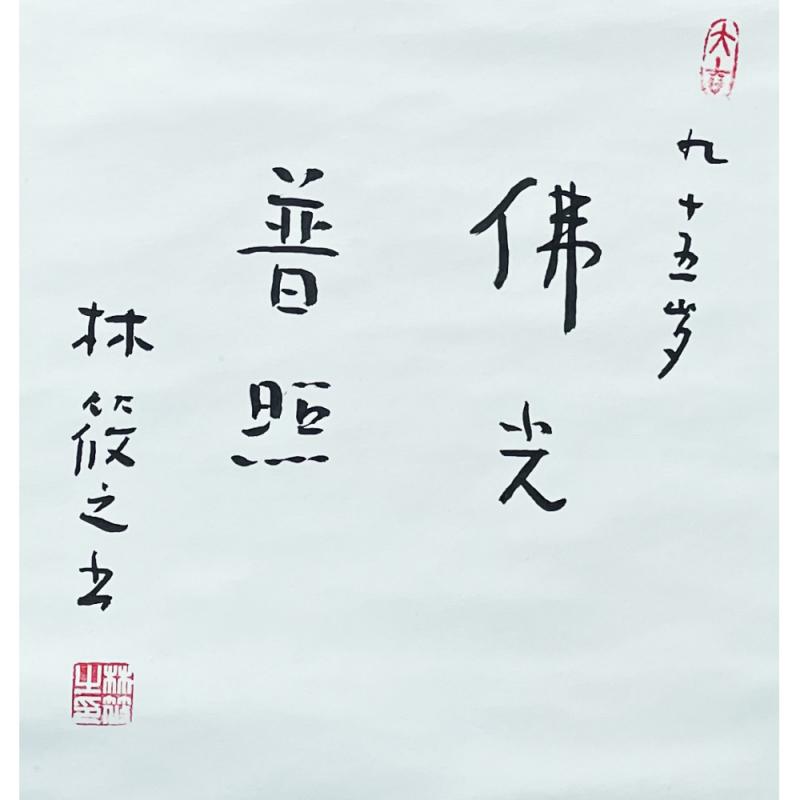 大吉
九十五岁
佛光
普照
林筱之书
林筱之印